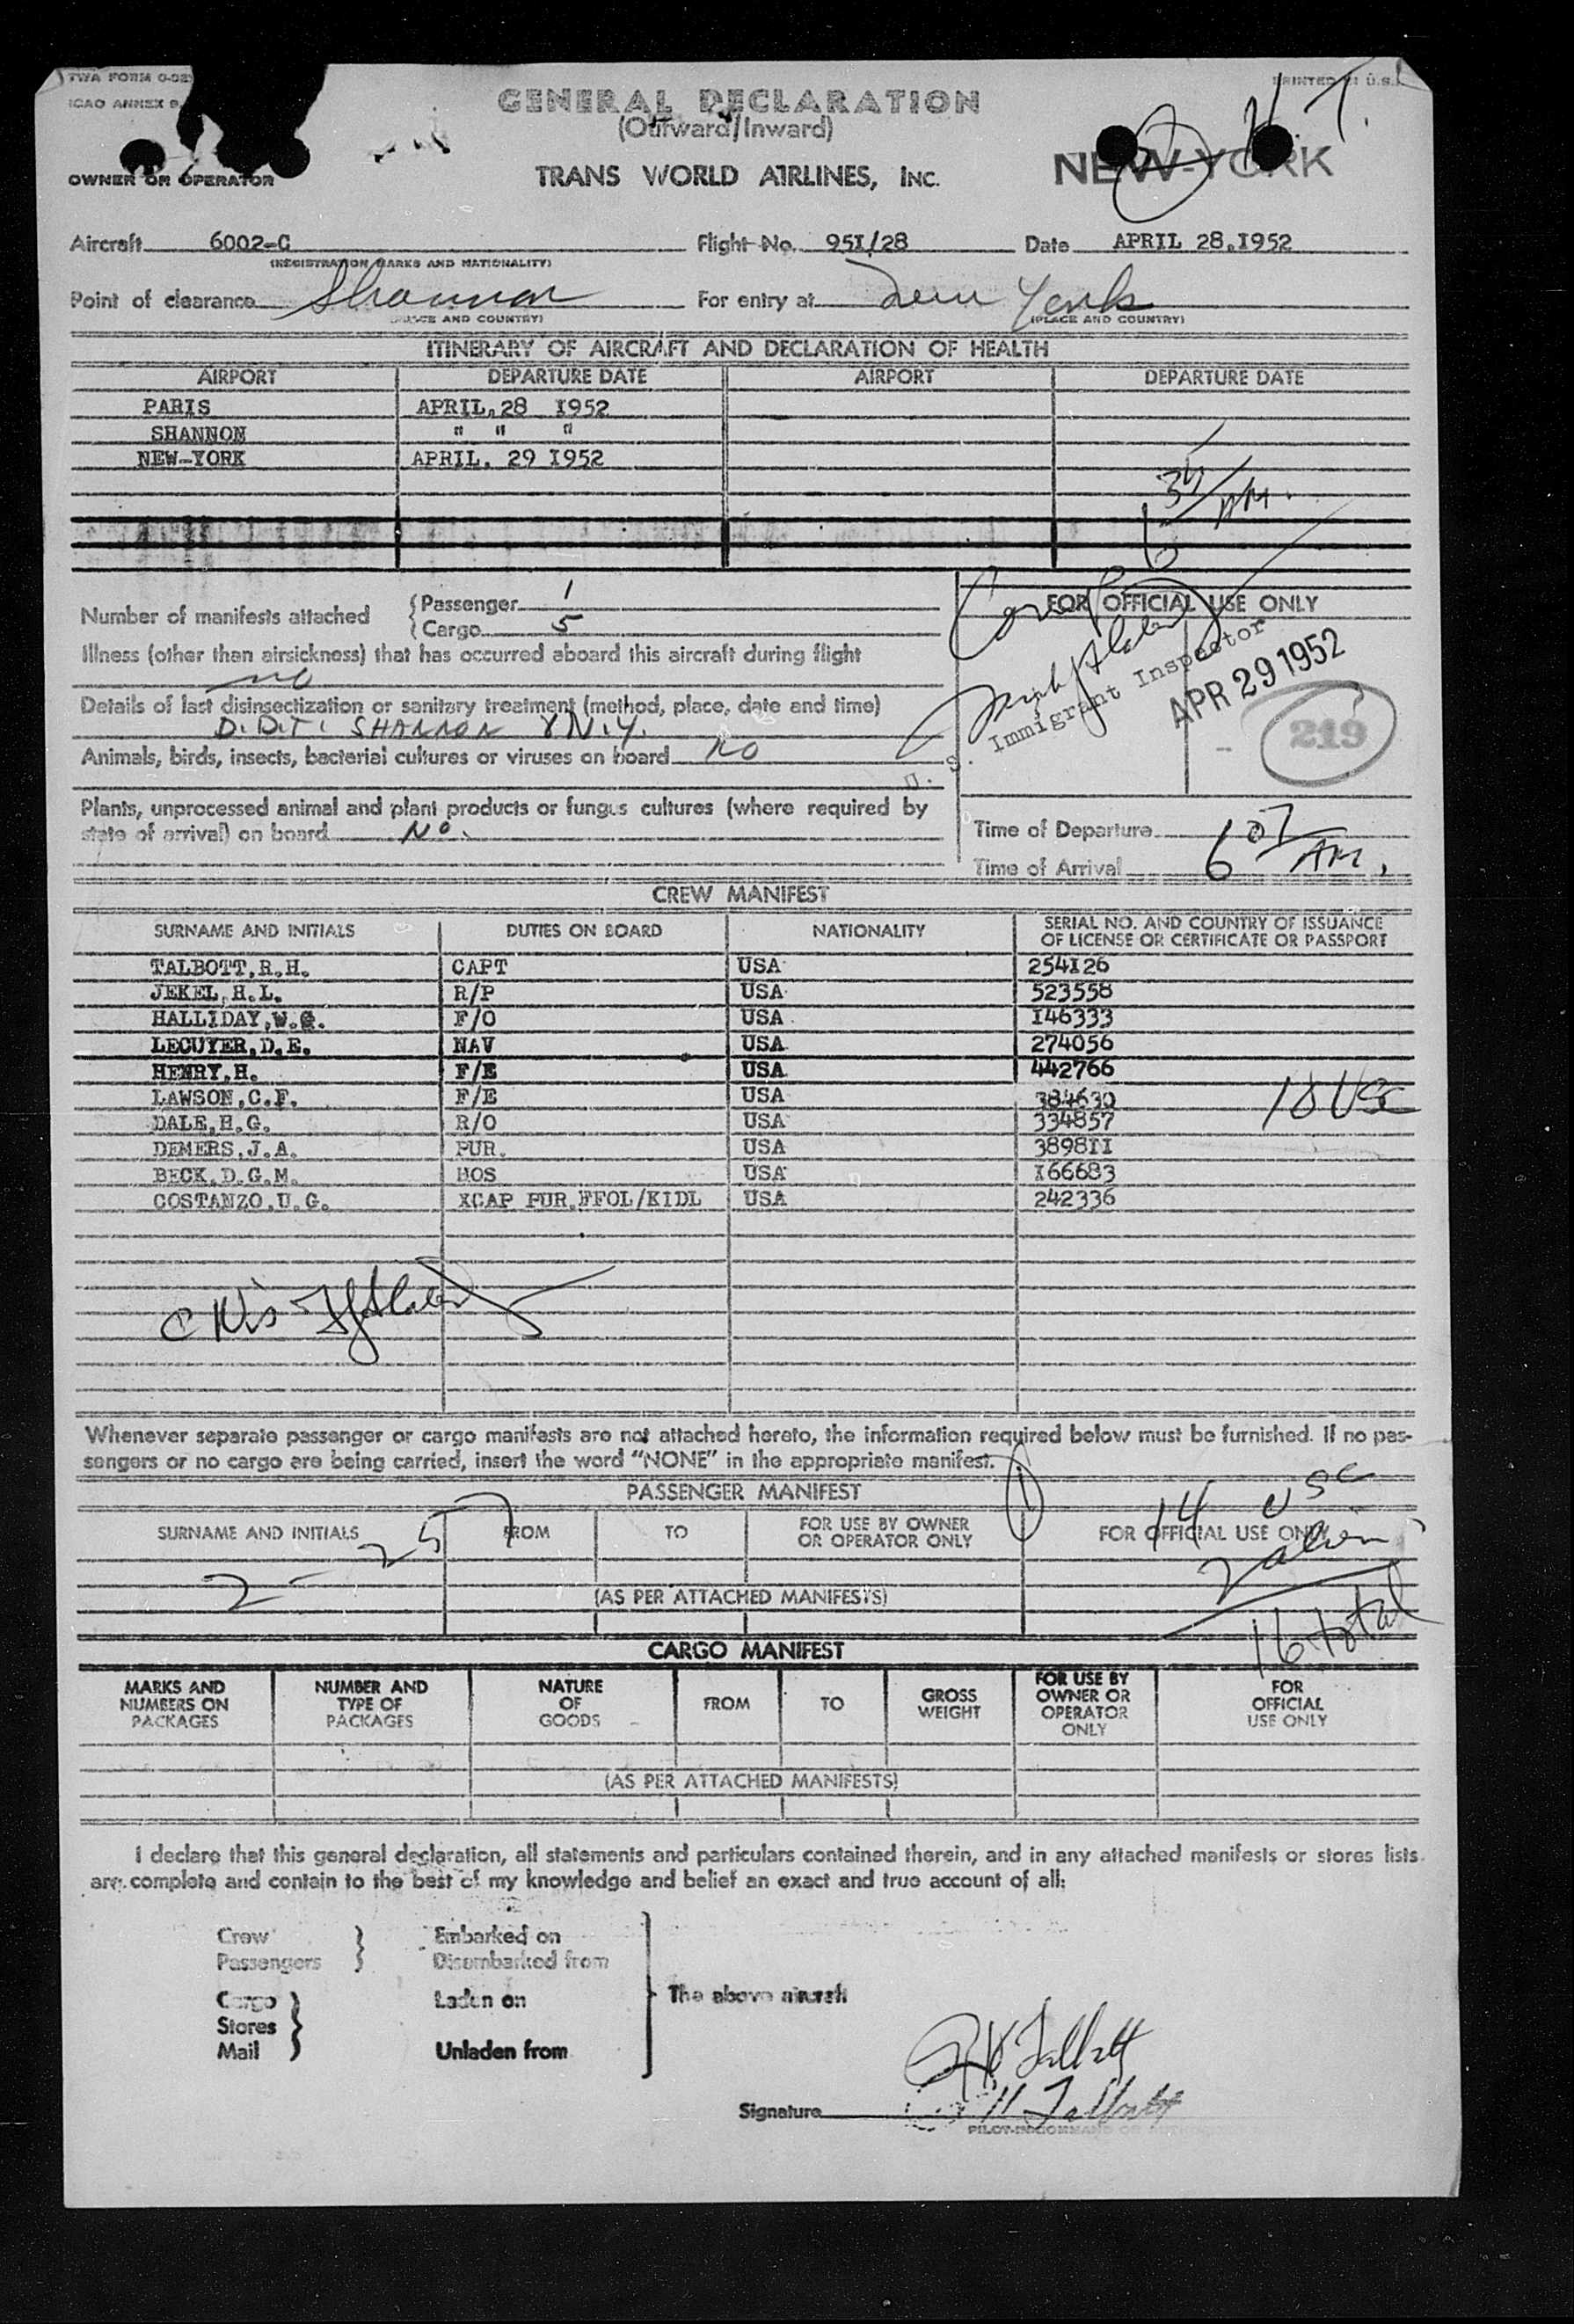 TWA FORM 0-02
ICAO ANNEX 9
PRINTED IN U.S.
GENERAL DECLARATION
(Outward/Inward)
H. T.
OWNER OR OPERATOR
TRANS WORLD AIRLINES, INC.
NEW-YORK
Aircraft 6002-C Flight No. 95I/28 Date APRIL 28.I952
(REGISTRATION MARKS AND NATIONALITY)
Point of clearance Shannon For entry at New York
(PLACE AND COUNTRY) (PLACE AND COUNTRY)
ITINERARY OF AIRCRAFT AND DECLARATION OF HEALTH
AIRPORT DEPARTURE DATE AIRPORT DEPARTURE DATE
PARIS APRIL.28 I952
SHANNON " " "
NEW-YORK APRIL. 29 I952
6 35 AM.
Number of manifests attached { Passenger 1
{ Cargo 5
FOR OFFICIAL USE ONLY
Illness (other than airsickness) that has occurred aboard this aircraft during flight
no
U. S. Immigrant Inspector
APR 29 1952
219
Details of last disinsectization or sanitary treatment (method, place, date and time)
D.D.T. SHANNON & N.Y.
Animals, birds, insects, bacterial cultures or viruses on board no
Plants, unprocessed animal and plant products or fungus cultures (where required by
state of arrival) on board No.
Time of Departure
Time of Arrival 6 07 AM.
CREW MANIFEST
SURNAME AND INITIALS DUTIES ON BOARD NATIONALITY SERIAL NO. AND COUNTRY OF ISSUANCE
OF LICENSE OR CERTIFICATE OR PASSPORT
TALBOTT,R.H. CAPT USA 254I26
JEKEL,H.L. R/P USA 523558
HALLIDAY,W.G. F/O USA I46333
LECUYER,D.E. NAV USA 274056
HENRY,H. F/E USA 442766
LAWSON,C.F. F/E USA 384630
10 USC
DALE,H.G. R/O USA 334857
DEMERS,J.A. PUR. USA 3898II
BECK.D.G.M. HOS USA I66683
COSTANZO.U.G. XCAP PUR.FFOL/KIDL USA 242336
Whenever separate passenger or cargo manifests are not attached hereto, the information required below must be furnished. If no pas-
sengers or no cargo are being carried, insert the word "NONE" in the appropriate manifest.
PASSENGER MANIFEST
14 USC
SURNAME AND INITIALS FROM TO FOR USE BY OWNER
OR OPERATOR ONLY FOR OFFICIAL USE ONLY
2 - 257
2 alien
(AS PER ATTACHED MANIFESTS)
16 total
CARGO MANIFEST
MARKS AND
NUMBERS ON
PACKAGES NUMBER AND
TYPE OF
PACKAGES NATURE
OF
GOODS FROM TO GROSS
WEIGHT FOR USE BY
OWNER OR
OPERATOR
ONLY FOR
OFFICIAL
USE ONLY
(AS PER ATTACHED MANIFESTS)
I declare that this general declaration, all statements and particulars contained therein, and in any attached manifests or stores lists
are complete and contain to the best of my knowledge and belief an exact and true account of all:
Crew Embarked on
Passengers Disembarked from
Cargo Laden on The above aircraft
Stores
Mail Unladen from
R H Talbott
Signature R H Talbott
PILOT-IN-COMMAND OR